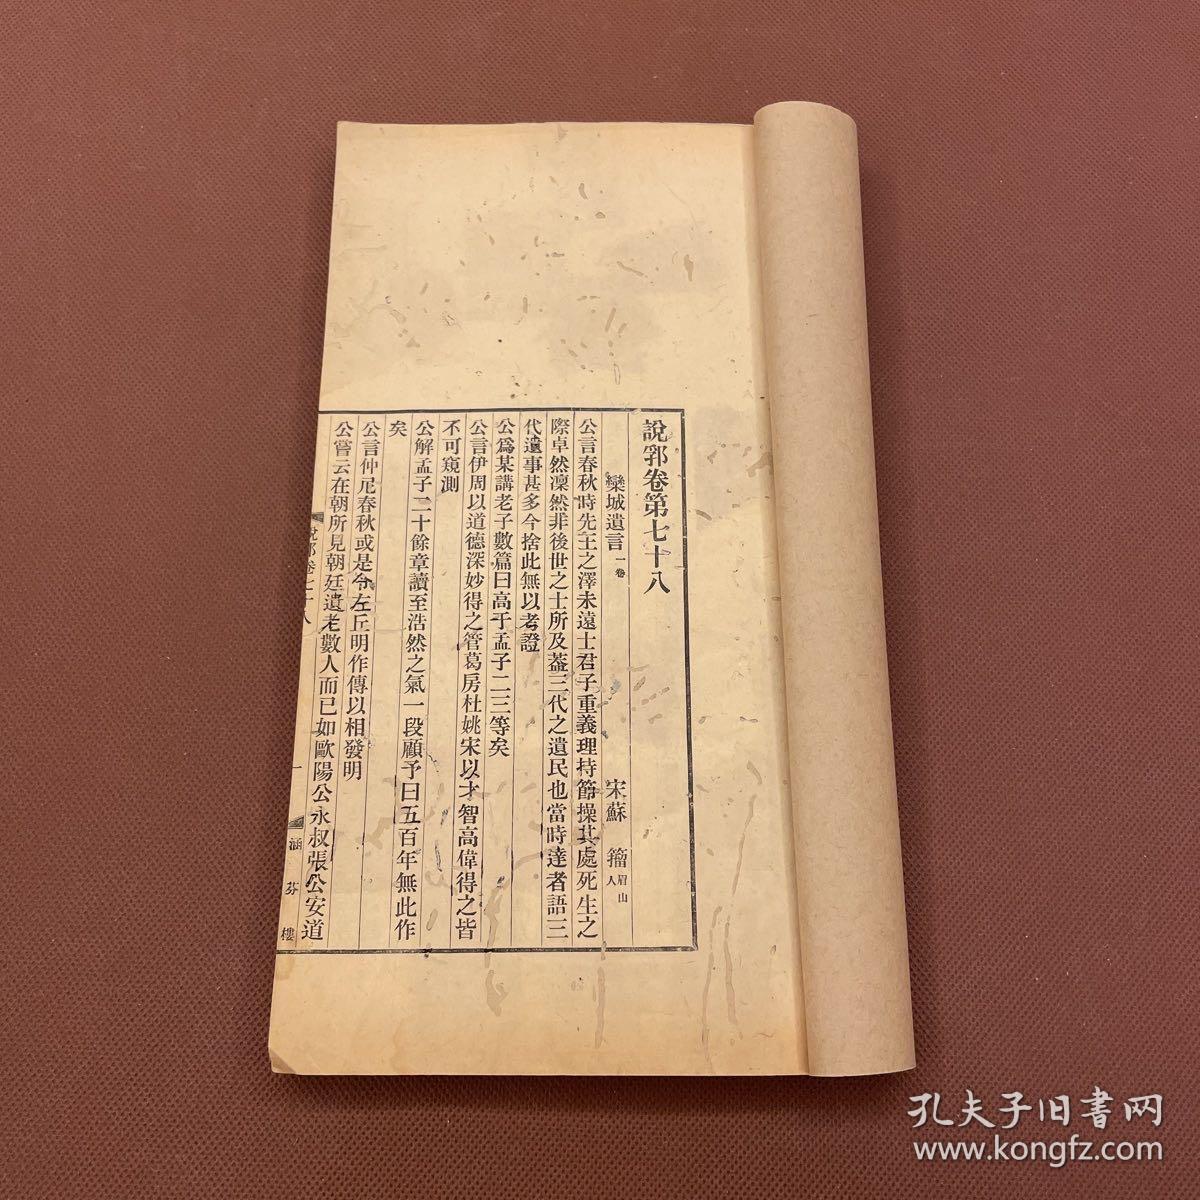 說郛卷第七十八
欒城遺言 一卷 宋蘇籀 眉山人
公言春秋時先王之澤未遠士君子重義理持節操其處死生之
際卓然凜然非後世之士所及蓋三代之遺民也當時達者語三
代遺事甚多今捨此無以考證
公爲某講老子數篇曰高于孟子二三等矣
公言伊周以道德深妙得之管葛房杜姚宋以才智高偉得之皆
不可窺測
公解孟子二十餘章讀至浩然之氣一段顧予曰五百年無此作
矣
公言仲尼春秋或是令左丘明作傳以相發明
公嘗云在朝所見朝廷遺老數人而已如歐陽公永叔張公安道
說郛卷七十八 一 涵芬樓
孔夫子旧书网
www.kongfz.com